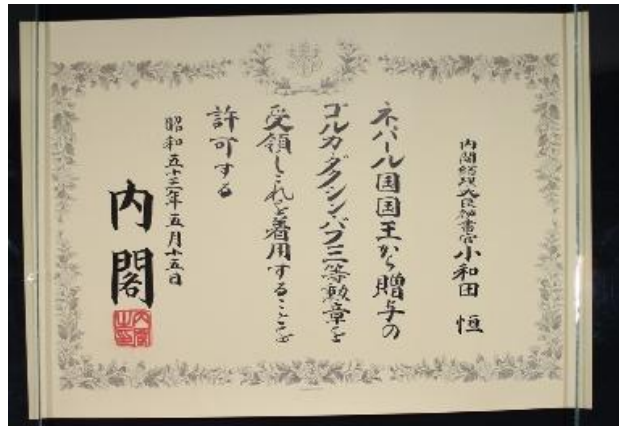 内閣総理大臣秘書官小和田 恒
ネパール国国王から贈与の
ゴルカ・ダクシン・バフ三等勲章を
受領しこれを着用することを
許可する
昭和五十三年五月十五日
内閣
内閣之印